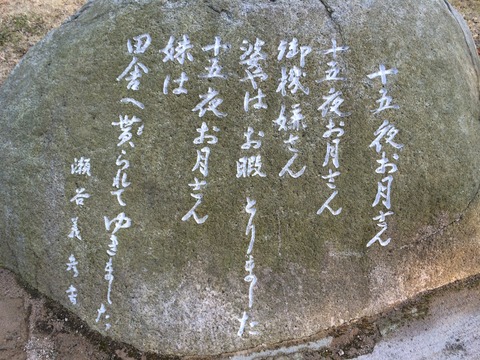 十五夜お月さん
十五夜お月さん
御機嫌さん
婆やはお暇とりました
十五夜お月さん
妹は
田舎へ貰られてゆきました
瀬谷義彦書